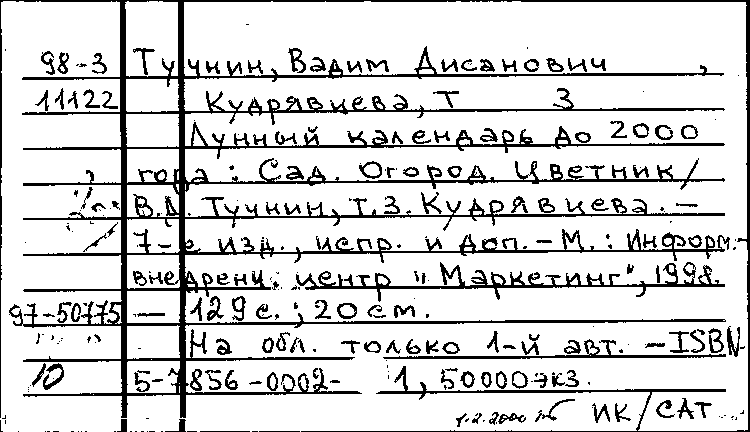 98-3 Тучнин, Вадим Дисанович,
11122 Кудрявцева, Т З
Лунный календарь до 2000
года : Сад. Огород. Цветник/
В.Д. Тучнин, Т.З. Кудрявцева. —
7-е изд., испр. и доп. – М. : Информ.-
внедренч. центр "Маркетинг", 1998.
97-50775 — 129 с. ; 20 см.
На обл. только 1-й авт. — ISBN
10 5-7856-0002-1, 50000 экз.
1.2.2000 ИК/САТ